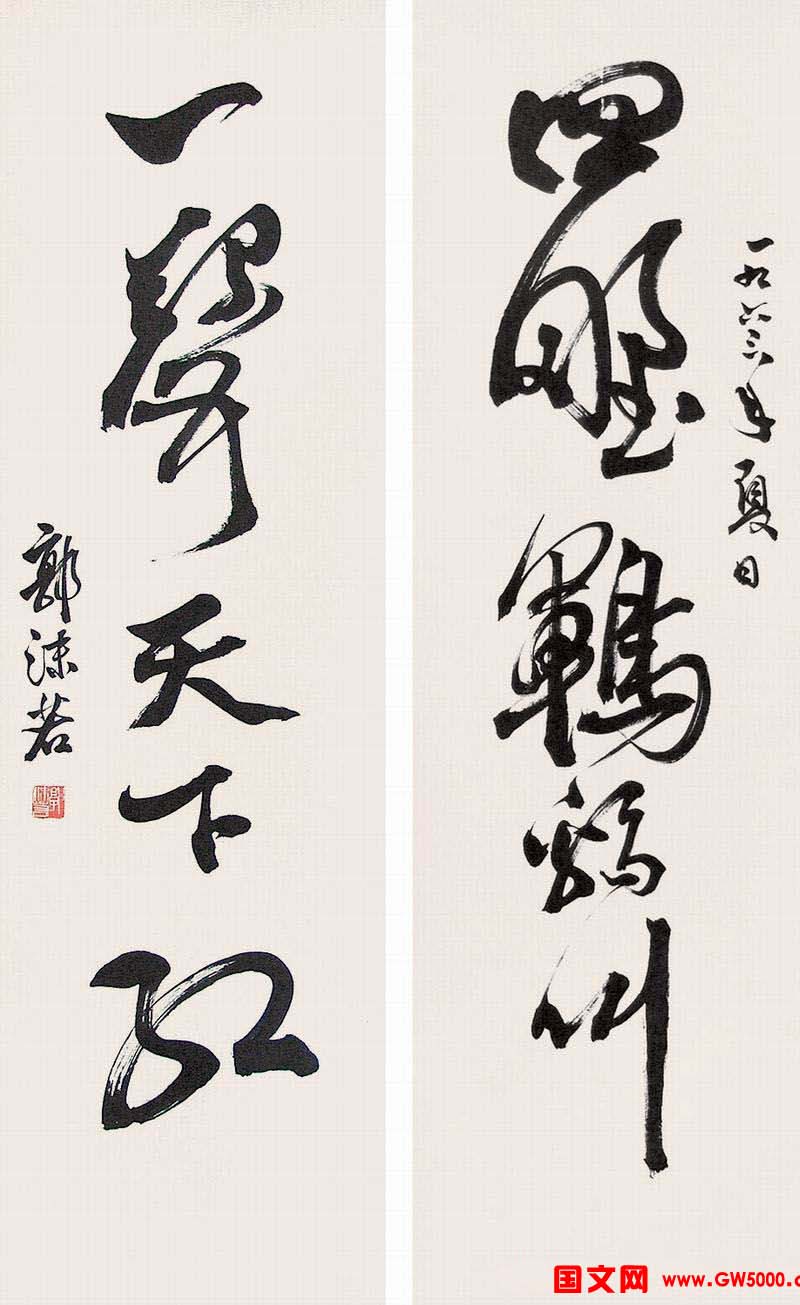 一九六年夏日
四野鶤鷄叫
一聲天下紅
郭沫若
国文网 www.GW5000.c